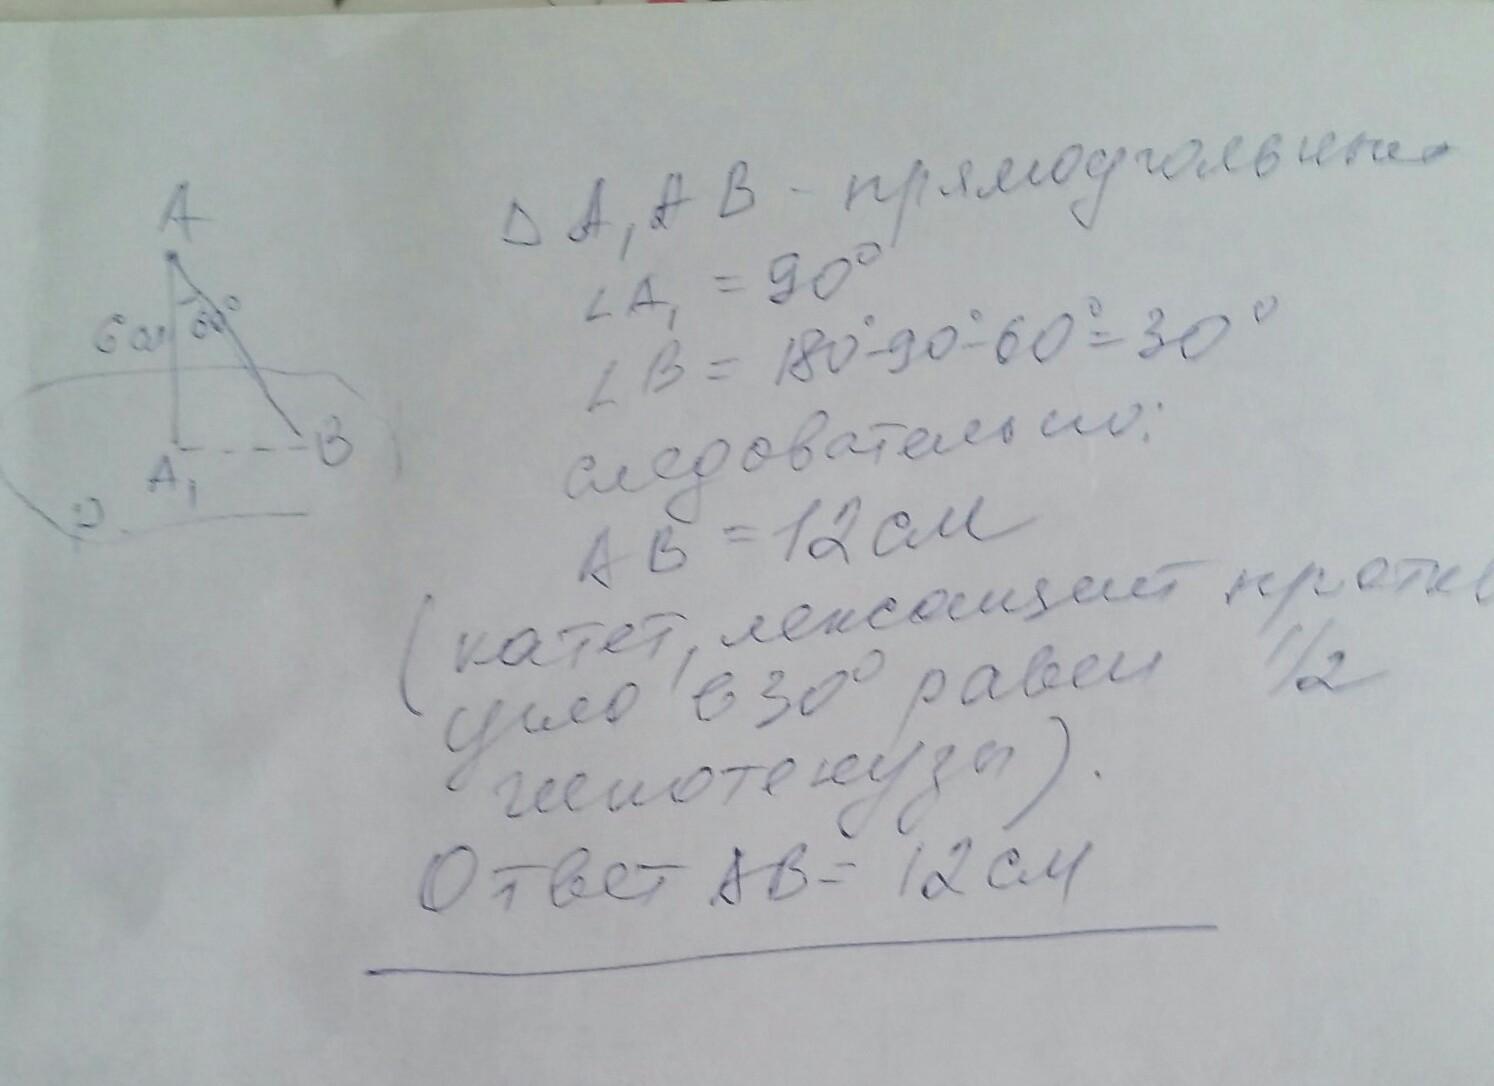 A
6 см 60°
A₁ B
△ A₁ A B - прямоугольник
∠A₁ = 90°
∠B = 180°-90°-60°=30°
следовательно:
AB = 12 см
(катет, лежащит против
угла в 30° равен 1/2
гипотенузы).
Ответ AB = 12 см